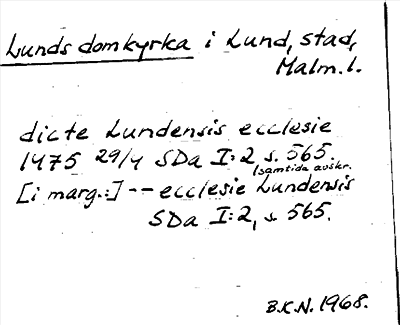 Lunds domkyrka i Lund, stad,
Malm. l.
dicte Lundensis ecclesie
1475 29/4 SDa I:2, s. 565.
(samtida avskr.
[i marg.:] -- ecclesie Lundensis
SDa I:2, s. 565.
B.K.N. 1968.